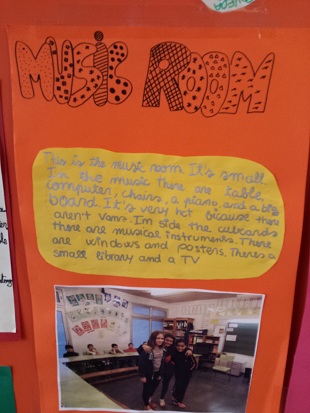 MUSIC ROOM
This is the music room It's small.
In the music there are table,
computer, chairs, a piano, and a big
board. It's very hot bicause there
arent vans. Im side the cubcards
there are musical instruments. There
are windows and posters. There's a
small library and a TV